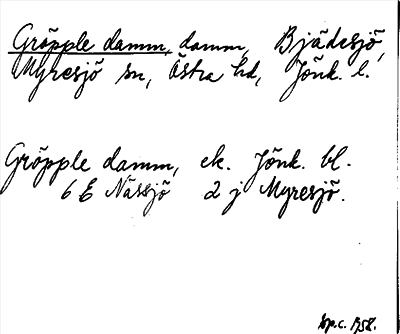 Gröpple damm, damm, Bjädesjö,
Myresjö sn, Östra hd, Jönk. l.
Gröpple damm, ek. Jönk. bl.
6 E Nässjö 2 j Myresjö.
top.c. 1958.